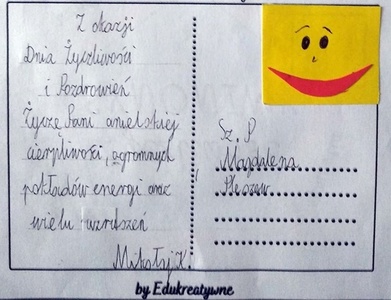 Z okazji
Dnia Życzliwości
i Pozdrowień
Życzę Pani anielskiej
cierpliwości, ogromnych
pokładów energi oraz
wielu wzruszeń
Mikołaj K.
Sz. P
Magdalena
Pleszew
by Edukreatywne